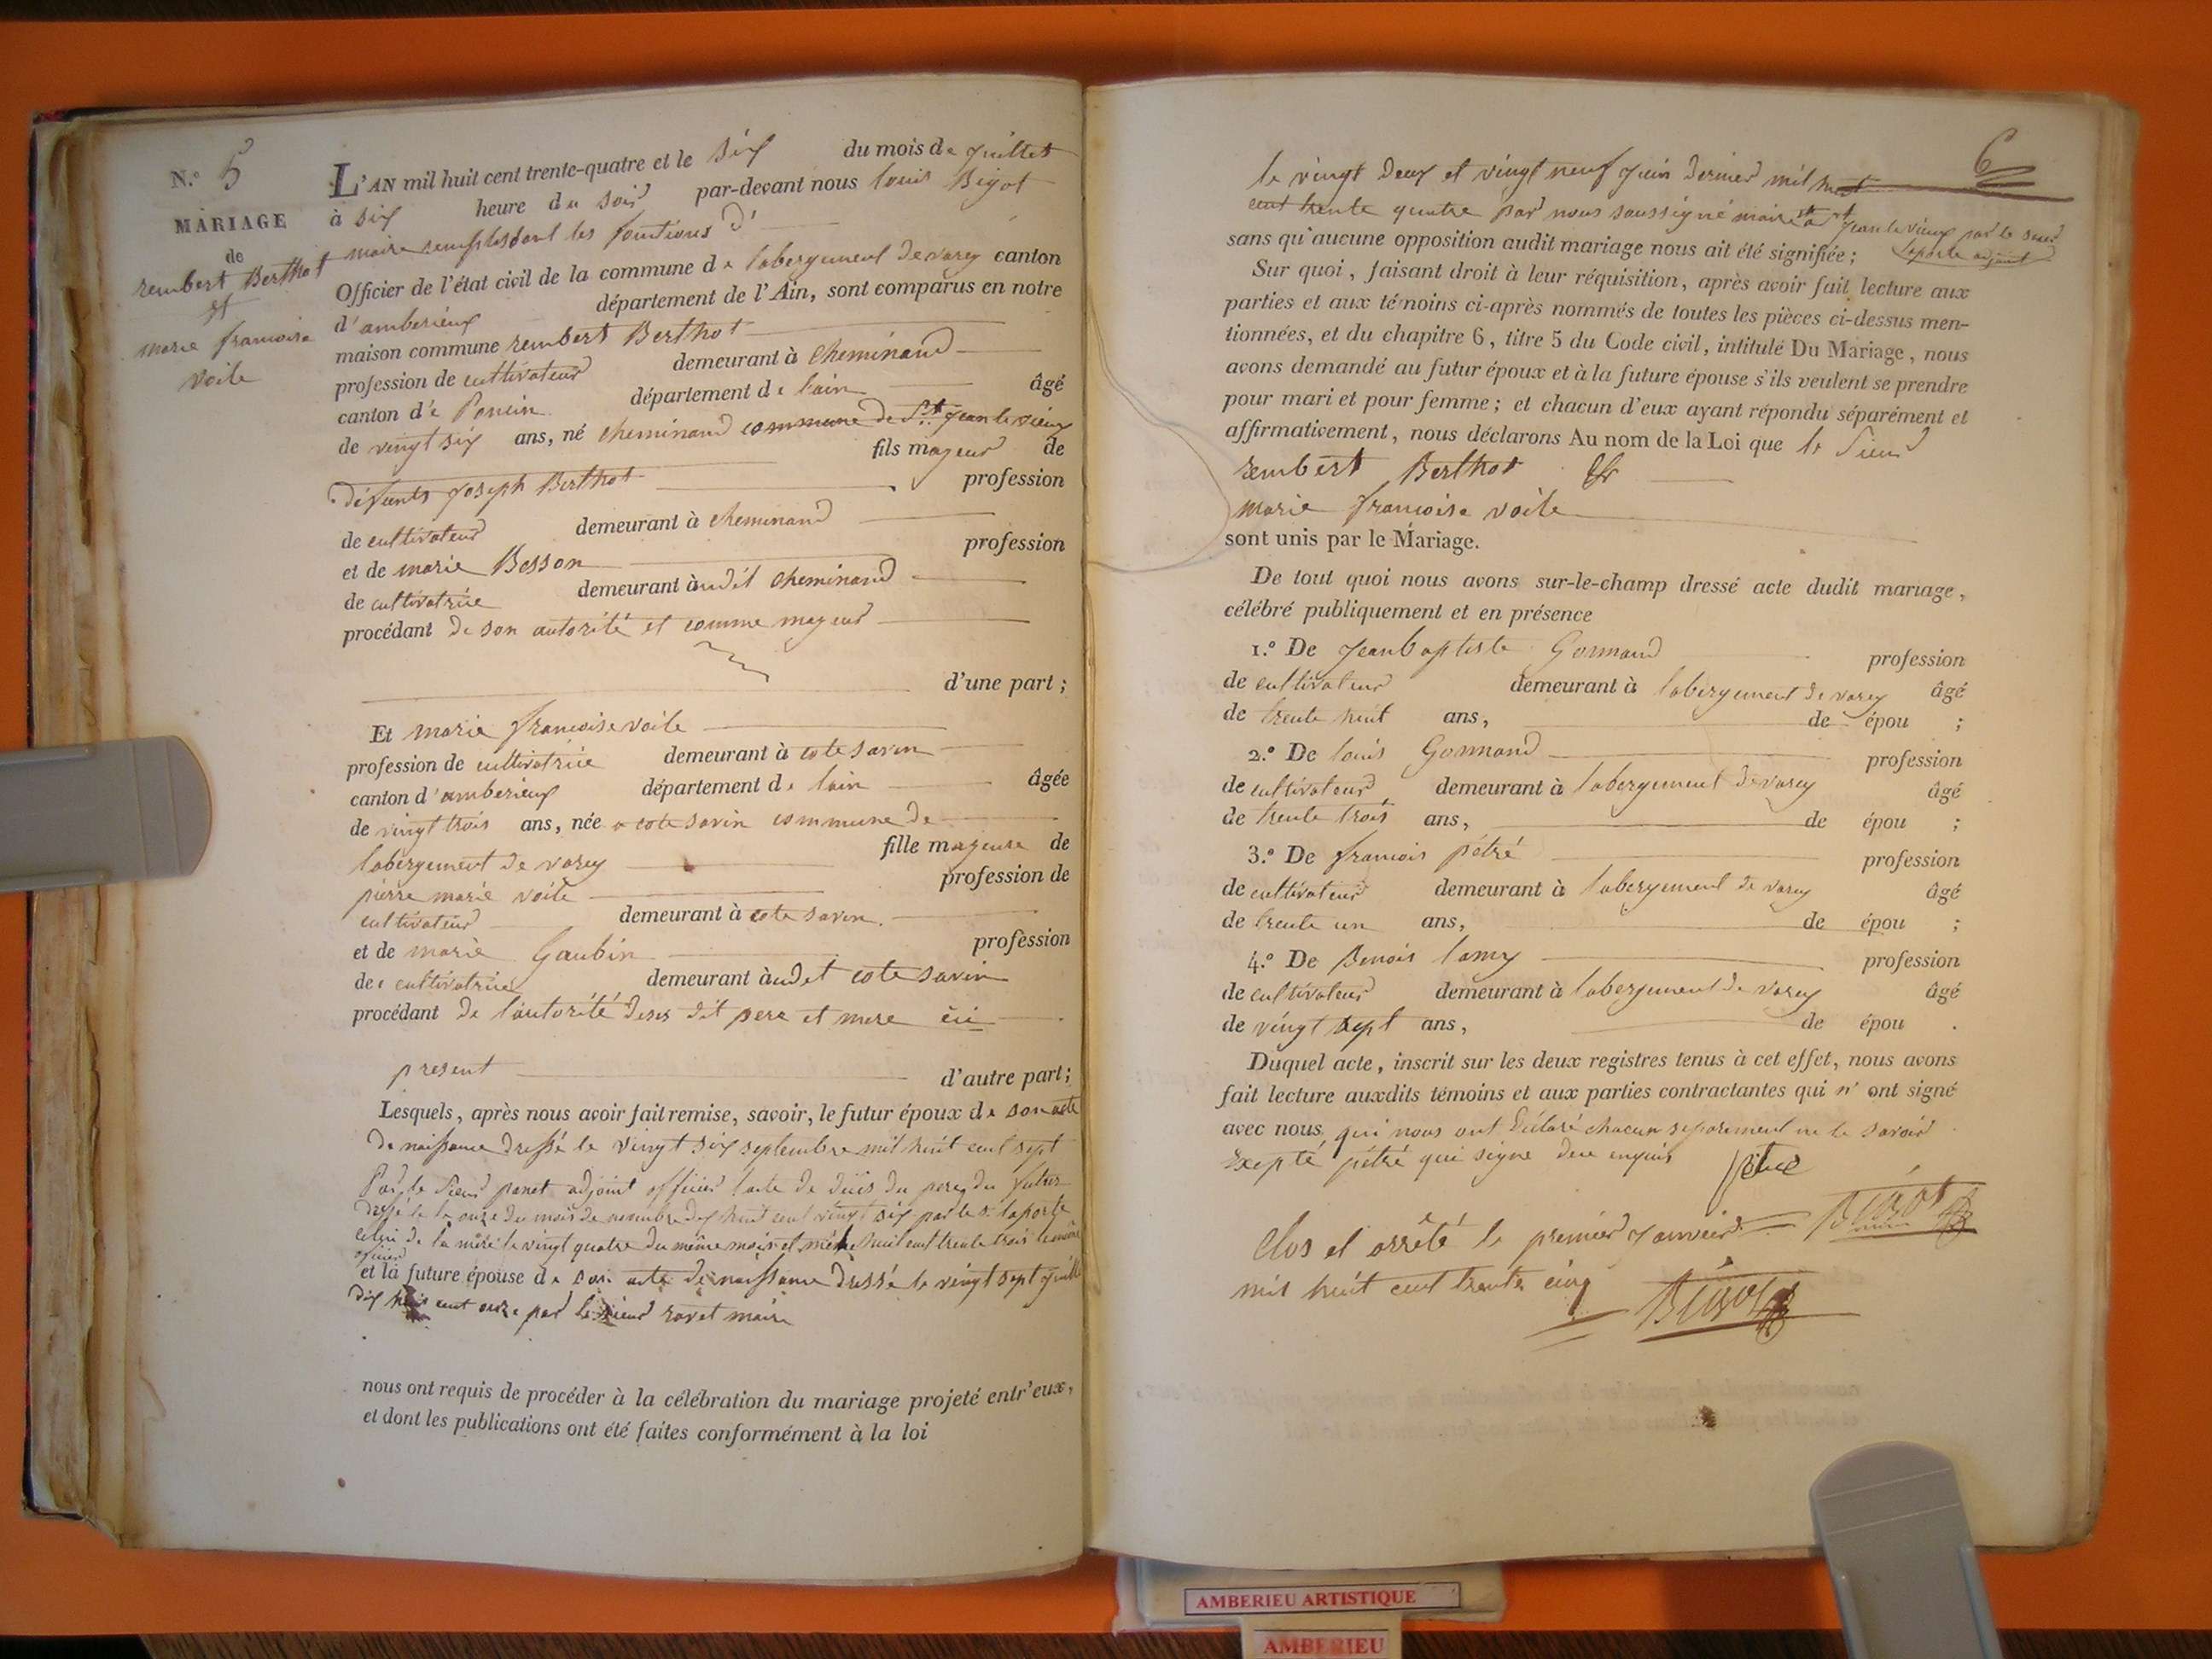 N.º 5
MARIAGE
de
rembert Berthot
et
marie francoise
voile
L'AN mil huit cent trente-quatre et le six du mois de juillet
à six heure du soir par-devant nous louis Bigot
maire remplissant les fonctions d'
Officier de l'état civil de la commune de labergement de varey canton
d'amberieux département de l'Ain, sont comparus en notre
maison commune rembert Berthot
profession de cultivateur demeurant à cheminand
canton de Poncin département de lain âgé
de vingt six ans, né cheminand commune de St. jean le vieux
fils majeur de
défunts joseph Berthot profession
de cultivateur demeurant à cheminand
et de marie Besson profession
de cultivatrice demeurant àudit cheminand
procédant de son autorité et comme majeur
d'une part ;
Et marie francoise voile
profession de cultivatrice demeurant à cote savin
canton d'amberieux département de lain âgée
de vingt trois ans, née a cote savin commune de
labergement de varey fille majeure de
pierre marie voile profession de
cultivateur demeurant à cote savin
et de marie Gaubin profession
de cultivatrice demeurant àudit cote savin
procédant de l'autorité de ses dit pere et mere ici
present d'autre part ;
Lesquels, après nous avoir fait remise, savoir, le futur époux de son acte
de naissance dressé le vingt six septembre mil huit cent sept
Par le sieur panet adjoint officier l'acte de deces du pere du futur
dressé le onze du mois de novembre dix huit cent vingt six par le sr. laporte
celui de la mère le vingt quatre du même mois et huit cent trente trois
officier
et la future épouse de son acte de naissance dressé le vingt sept juillet
dix huit cent onze par le sieur ravet maire
nous ont requis de procéder à la célébration du mariage projeté entr'eux,
et dont les publications ont été faites conformément à la loi
6
le vingt deux et vingt neuf juin dernier mil huit
cent trente quatre par nous soussigné maire et a st jean le vieux par le sieur
laporte adjoint
sans qu'aucune opposition audit mariage nous ait été signifiée ;
Sur quoi, faisant droit à leur réquisition, après avoir fait lecture aux
parties et aux témoins ci-après nommés de toutes les pièces ci-dessus men-
tionnées, et du chapitre 6, titre 5 du Code civil, intitulé Du Mariage, nous
avons demandé au futur époux et à la future épouse s'ils veulent se prendre
pour mari et pour femme ; et chacun d'eux ayant répondu séparément et
affirmativement, nous déclarons Au nom de la Loi que le Sieur
rembert Berthot et
marie francoise voile
sont unis par le Mariage.
De tout quoi nous avons sur-le-champ dressé acte dudit mariage,
célébré publiquement et en présence
1.º De jean baptiste Gonnand profession
de cultivateur demeurant à labergement de varey âgé
de trente huit ans, de épou ;
2.º De louis Gonnand profession
de cultivateur demeurant à labergement de varey âgé
de trente trois ans, de épou ;
3.º De francois pétré profession
de cultivateur demeurant à labergement de varey âgé
de trente un ans, de épou ;
4.º De Benois lamy profession
de cultivateur demeurant à labergement de varey âgé
de vingt sept ans, de épou .
Duquel acte, inscrit sur les deux registres tenus à cet effet, nous avons
fait lecture auxdits témoins et aux parties contractantes qui n'ont signé
avec nous, qui nous ont déclaré chacun separement ne le savoir
Excepté pétré qui signe de ce enquis
Bigot
Clos et arrêté le premier janvier
mil huit cent trente cinq Bigot
AMBERIEU ARTISTIQUE
AMBERIEU